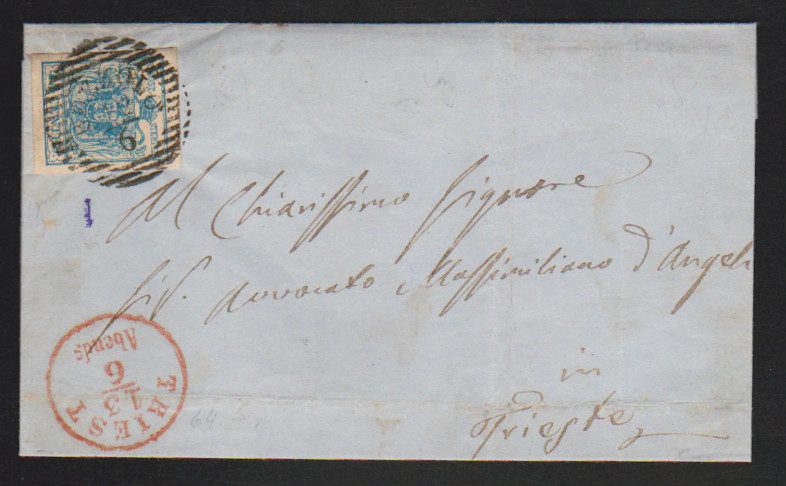 Al Chiarissimo Signore
Sigr. Avvocato Massimiliano d'Angeli
in
Trieste
TRIEST
Abends
64